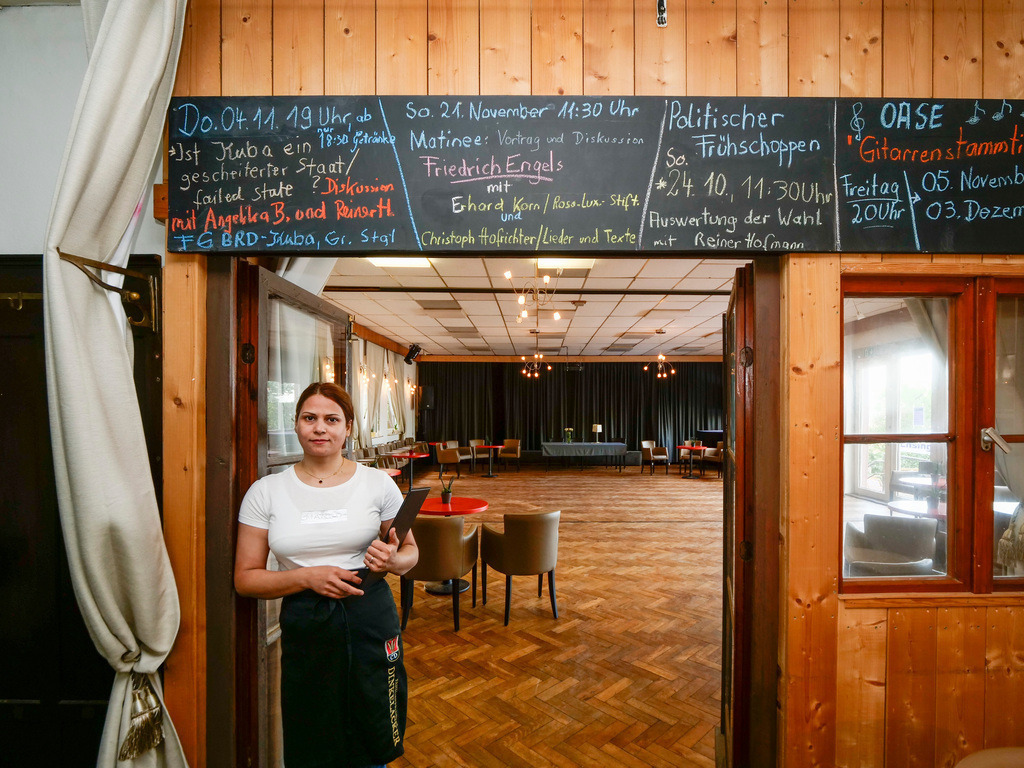 Do. 04.11. 19 Uhr, ab
18:30 Getränke
Ist Kuba ein
gescheiterter Staat/
failed state ? Diskussion
mit Angelika B. und Reiner H.
FG BRD-Kuba, Gr. Stgt
So. 21. November 11:30 Uhr
Matinee: Vortrag und Diskussion
Friedrich Engels
mit
Erhard Korn / Rosa-Lux.-Stift.
und
Christoph Hofrichter/Lieder und Texte
Politischer
Frühschoppen
So.
*24.10., 11:30 Uhr
Auswertung der Wahl
mit Reiner Hofmann
OASE
"Gitarrenstammti
Freitag
20 Uhr
05. Novemb
03. Dezem
CD
DINKELACKER